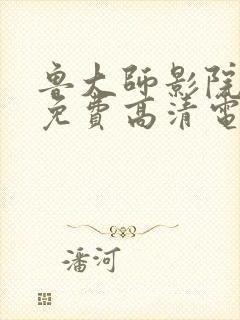 鲁大师影院
免費高清電
潘河